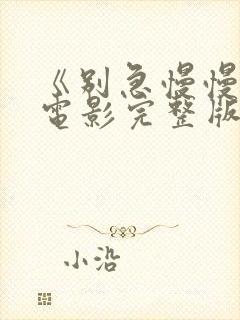 《别急慢慢
电影完整版
小沿